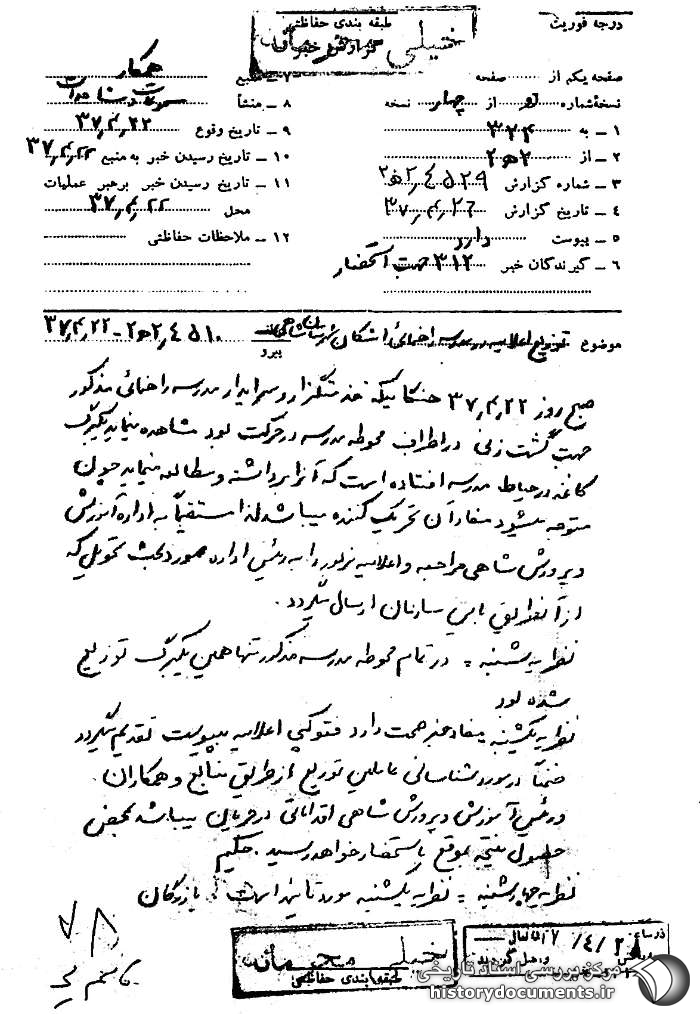 درجه فوریت
طبقه بندی حفاظتی
خیلی محرمانه
گزارش خبر
صفحه یکم از صفحه
نسخه شماره دو از چهار نسخه
۱ – به ۳۲۴
۲ – از ۲ ه ۲
۳ – شماره گزارش ۲٫۴۵۲۹ ه ۲
۴ – تاریخ گزارش ۳۷٫۴٫۲۶
۵ – پیوست دارد
۶ – گیرندگان خبر ۳۱۲ جهت استحضار
۷ – منبع همکار
۸ – منشأ
۹ – تاریخ وقوع ۳۷٫۴٫۲۲
۱۰ – تاریخ رسیدن خبر به منبع ۳۷٫۴٫۲۲
۱۱ – تاریخ رسیدن خبر برهبر عملیات
محل ۳۷٫۴٫۲۲
۱۲ – ملاحظات حفاظتی
موضوع توزیع اعلامیه در مدرسه راهنمائی اشکان شهرستان شاهی
پیرو ۲٫۴۵۱۰ ه ۲ – ۳۷٫۴٫۲۲
صبح روز ۳۷٫۴٫۲۲ هنگامیکه خدمتگزار و سرایدار مدرسه راهنمائی مذکور
جهت گشت زنی در اطراف محوطه مدرسه در حرکت بود مشاهده مینماید یکبرگ
کاغذ در حیاط مدرسه افتاده است که آنرا برداشته و مطالعه مینماید چون
متوجه میشود مفاد آن تحریک کننده میباشد لذا مستقیماً به اداره آموزش
و پرورش شاهی مراجعه و اعلامیه مزبور را به رئیس اداره مورد بحث تحویل که
از آنطریق باین سازمان ارسال میگردد.
نظریه شنبه = در تمام محوطه مدرسه مذکور تنها همین یکبرگ توزیع
شده بود
نظریه یکشنبه مفاد خبر صحت دارد فتوکپی اعلامیه بپیوست تقدیم میگردد
ضمناً در مورد شناسائی عاملین توزیع از طریق منابع و همکاران
و رئیس آموزش و پرورش شاهی اقداماتی در جریان میباشد بمحض
حصول نتیجه بموقع باستحضار خواهد رسید. حکیم
نظریه چهارشنبه = نظریه یکشنبه مورد تأیید است. بازرگان
خیلی محرمانه
طبقه بندی حفاظتی
مرکز بررسی اسناد تاریخی
historydocuments.ir